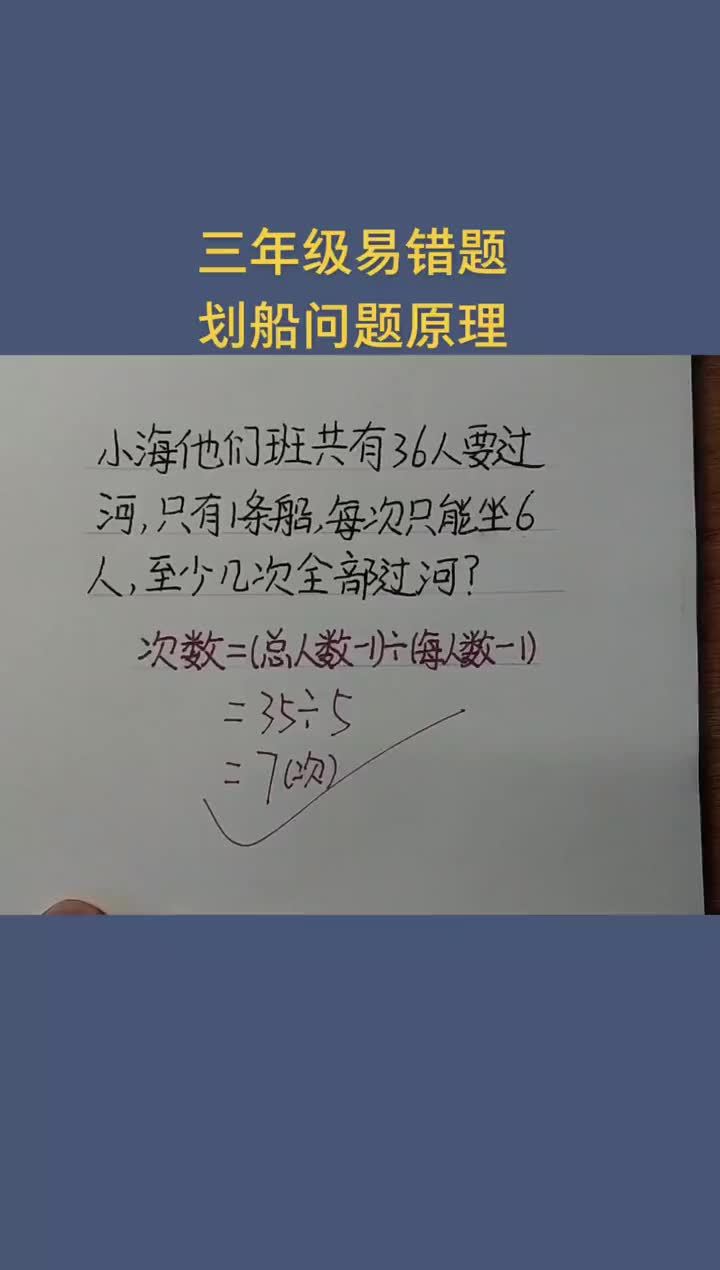 三年级易错题
划船问题原理
小海他们班共有36人要过
河,只有1条船,每次只能坐6
人,至少几次全部过河?
次数=(总人数-1)÷(每人数-1)
=35÷5
=7(次)